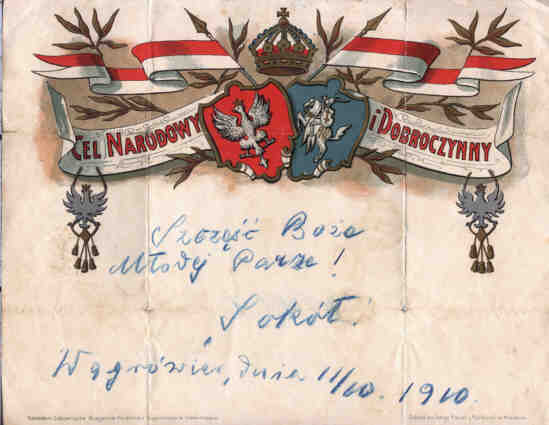 CEL NARODOWY
i DOBROCZYNNY
Szczęść Boże
Młodej Parze!
Sokół!
Wągrówiec, dnia 11/10. 1910.